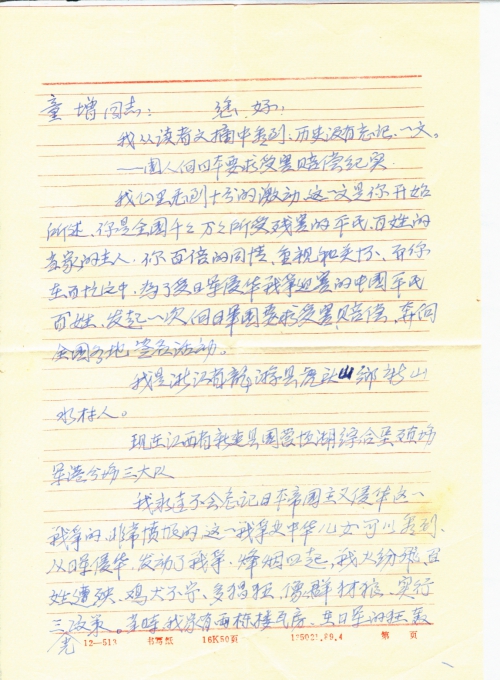 童增同志: 您好!
我从读者文摘中看到、历史没有忘记、一文。
——国人向日本要求受害赔偿纪实
我心里感到十分的激动、这一文是你开始
所述、你是全国千千万万所受残害的平民、百姓的
当家的主人、你百倍的同情、重视和关怀、而你
在百忙之中、为了受日军侵华战争迫害的中国平民
百姓、发起一次、向日本国要求受害赔偿、奔向
全国各地、签名活动。
我是浙江省龙游县 山乡 山
水村人。
现在江西省新建县国营恒湖综合垦殖场
军港分场三大队
我永远不会忘记日本帝国主义侵华这一
战争的、非常愤恨的这一战争史中华儿女可以看到、
从日军侵华、发动了战争、烽烟四起、战火纷飞、百
姓遭殃、鸡犬不宁、多猖狂、像群豺狼、实行
三光政策。当时我家有两栋楼瓦房、在日军的狂轰
12—513 书写纸 16K50页 89.4 第 页